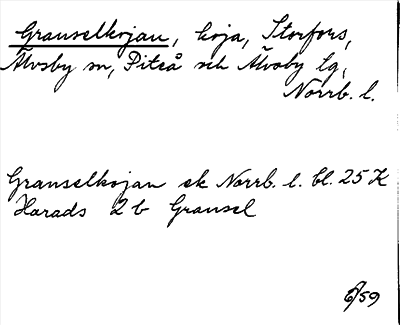 Granselkojan, koja, Storfors,
Älvsby sn, Piteå och Älvsby tg,
Norrb. l.
Granselkojan ek Norrb. l. bl. 25 K
Harads 2 b Gransel
/59